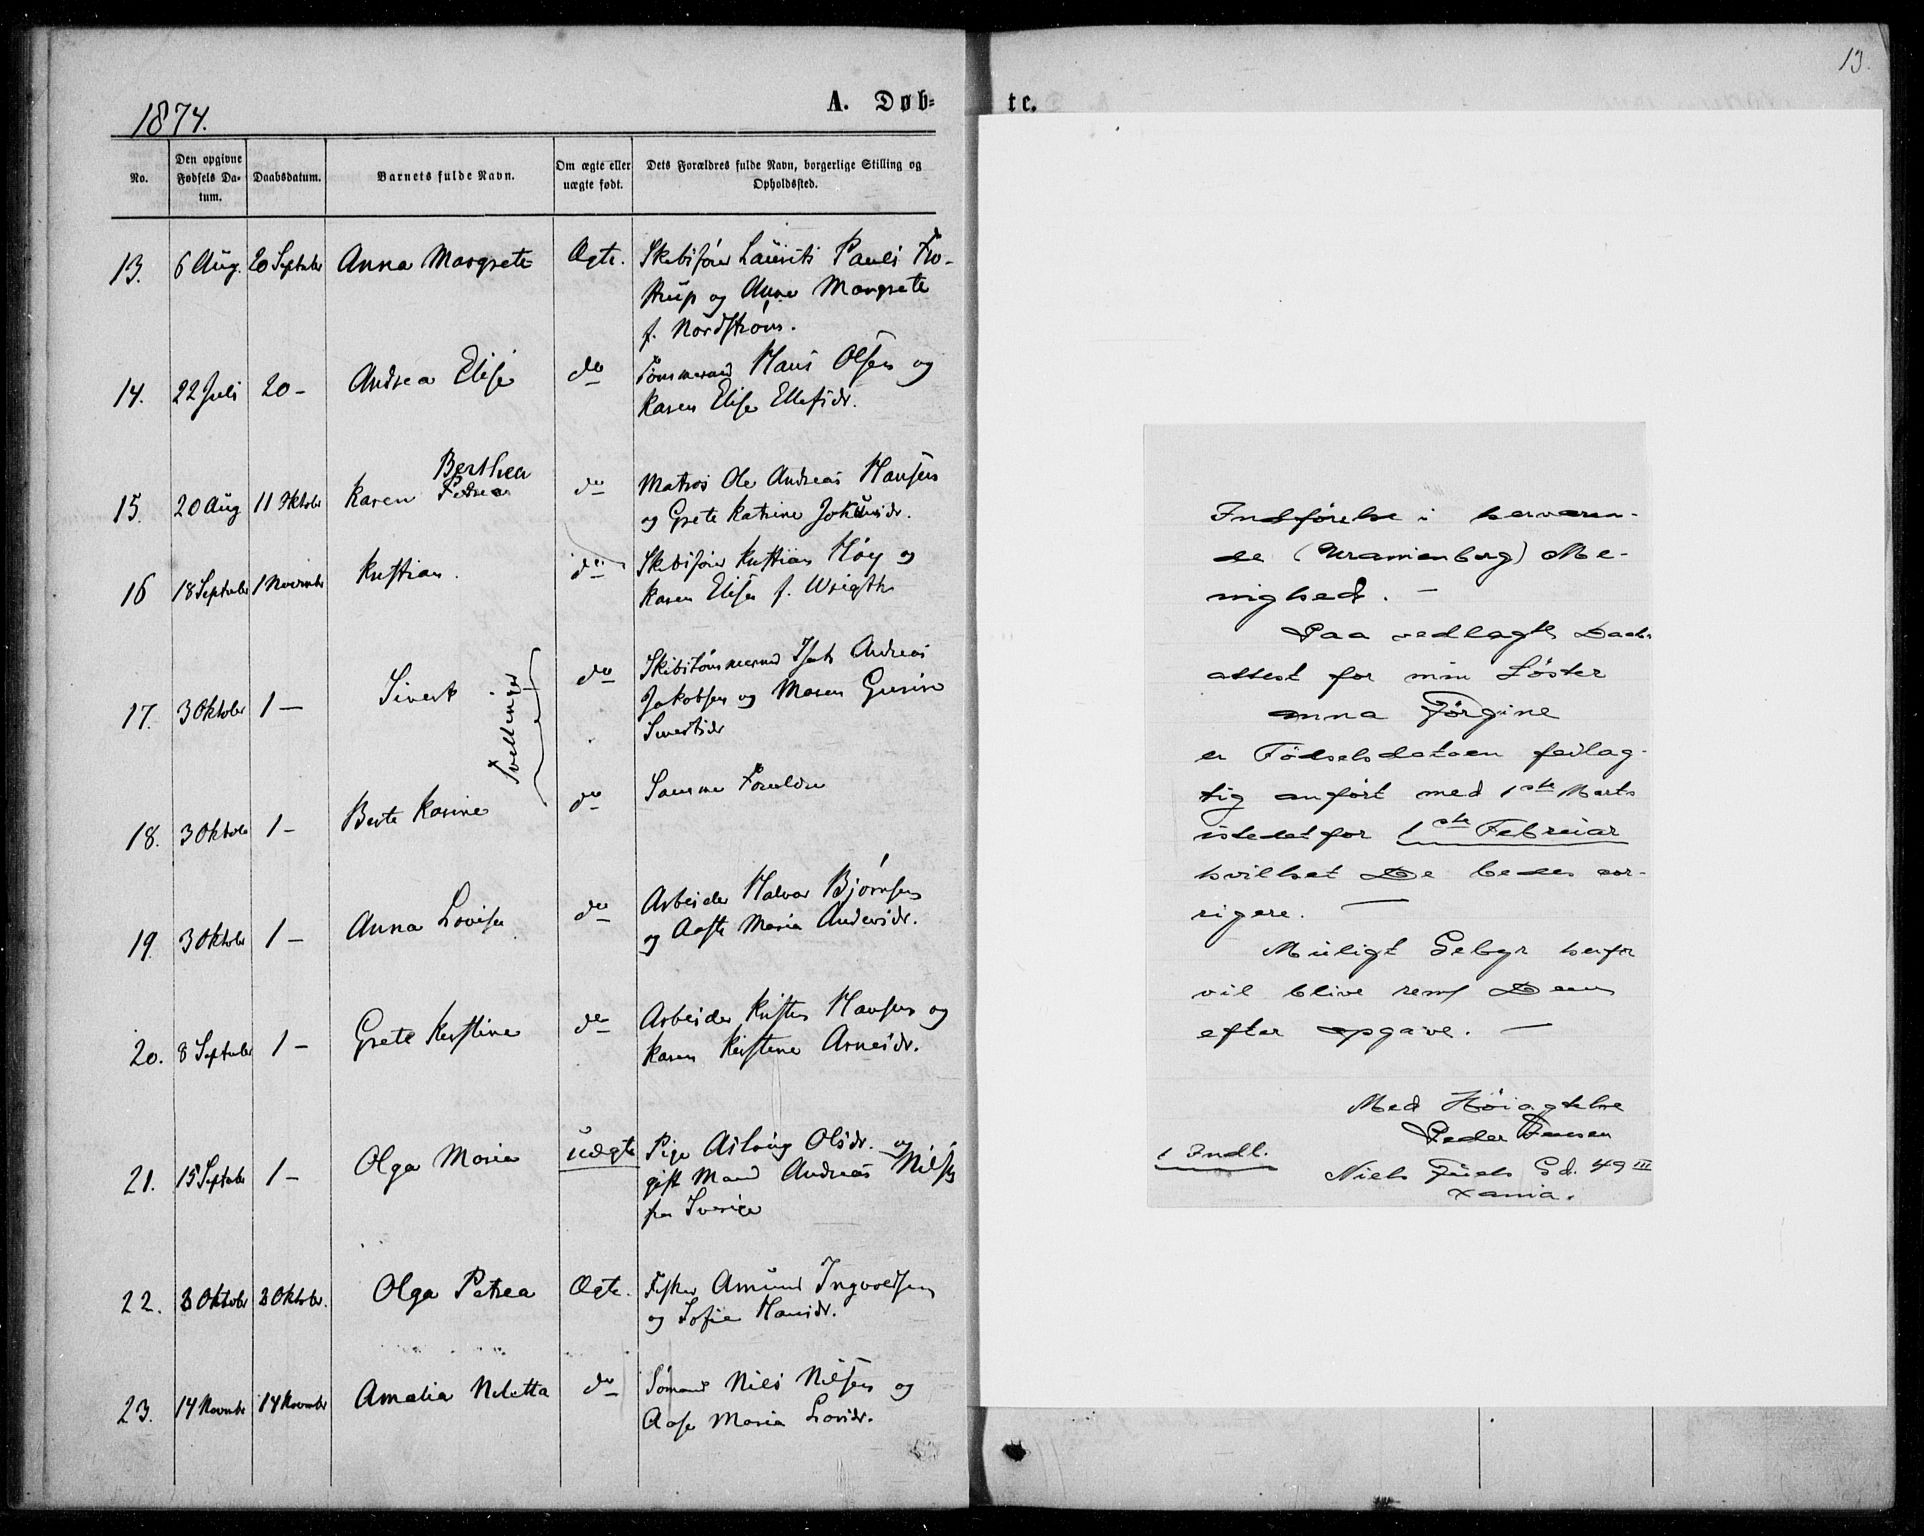 1874.
A. Døb-
te.
13.
No.
Den opgivne Fødsels Da-tum.
Daabsdatum.
Barnets fulde Navn.
Om ægte eller uægte født.
Dets Forældres fulde Navn, borgerlige Stilling og Opholdssted.
13. 6 Aug. 20 Septber Anna Margrete Ægte. Skibsfører Laurits Pauls Fro-
strup og Anne Margrete
f. Nordstrøm.
14. 22 Juli 20 - Andrea Elise do Tømmermd Hans Olsen og
Karen Elise Ellefsdr.
Berthea
15. 20 Aug 11 Oktober Karen Petrea do Matros Ole Andreas Hansen
og Grete Katrine Jokumsdr.
16 18 Septuber 1 November Kristian. do Skibsfører Kristian Høy og
Karen Elise f. Wrigth
17. 3 Oktober 1 - Sivert do Skibstømmermd Isak Andreas
Jakobsen og Maren Gurine
Sivertsdr
Tvillinger
18. 3 Oktober 1 - Berte Karine do Samme Forældre
19. 3 Oktober 1 - Anna Lovise do Arbeider Halvor Bjørnsen
og Aaste Maria Andersdr.
20. 8 Septuber 1 - Grete Kirstine do Arbeider Kristen Hansen og
Karen Kirstine Arnesdr.
21. 15 Septuber 1 - Olga Maria uægte Pige Aslaug Olsdr. og
gift Mand Andreas Nilsen
fra Sverige
22. 3 Oktober 3 Oktober. Olga Petrea Ægte. Fisker Amund Ingvoldsen
og Sofie Hansdr.
23. 14 Novmbr 14 Novmber Amalia Neletta do Sømand Nils Nilsen og
Aase Maria Larsdr.
Indførelse i herværen-
de (Uranienborg) Me-
nighed. -
Paa vedlagte Daabs-
attest for min Søster
Anna Jørgine
er Fødselsdatoen feilag-
tig anført med 1ste Marts
istedetfor 1ste Februar
hvilket De bedes cor-
rigere. -
Muligt Gebyr herfor
vil blive sendt Dem
efter opgave. -
Med Høiagtelse
Peder Jensen
1 Indl.
Niels Juels Gd. 49 III
Xania.